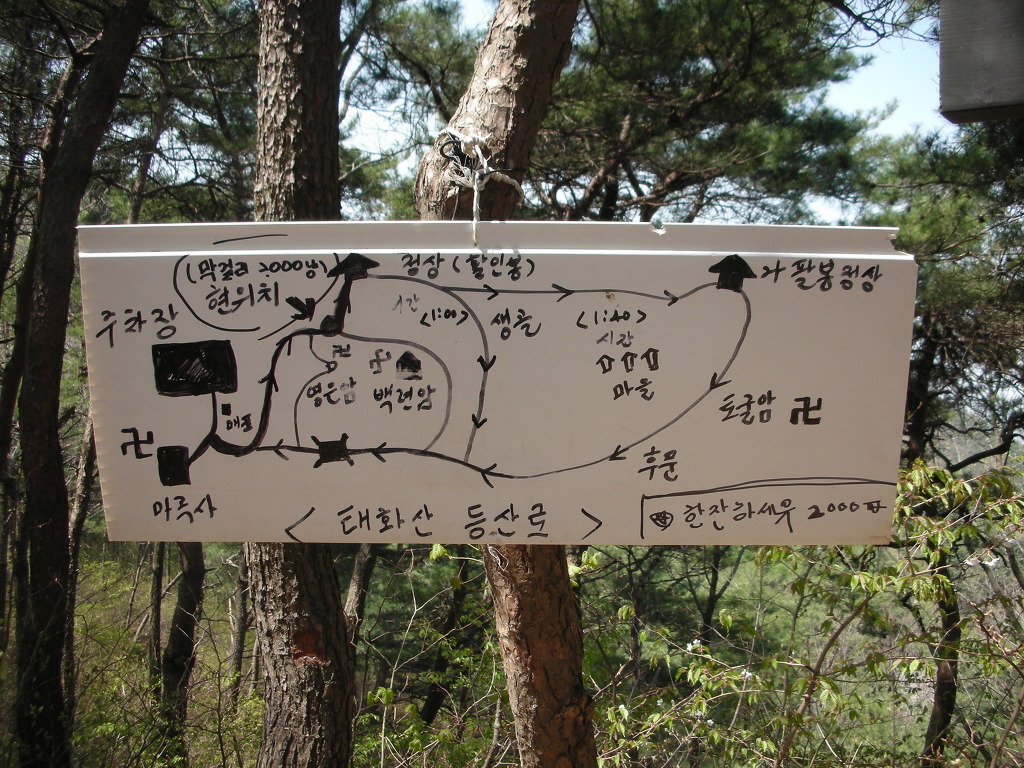 (막걸리 2000냥)
현위치
정상 (활인봉)
나팔봉정상
주차장
시간
<1:00>
샘골
<1:40>
시간
마을
卍
영은암
卍
백련암
매표
토굴암 卍
卍
마곡사
후문
<태화산 등산로>
한잔하세유 2000